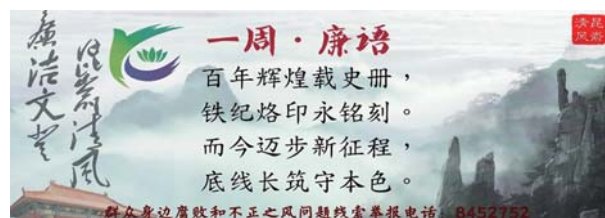 廉洁文登
昆嵛清风
一周·廉语
清风
昆嵛
百年辉煌载史册，
铁纪烙印永铭刻。
而今迈步新征程，
底线长筑守本色。
群众身边腐败和不正之风问题线索举报电话：8452752